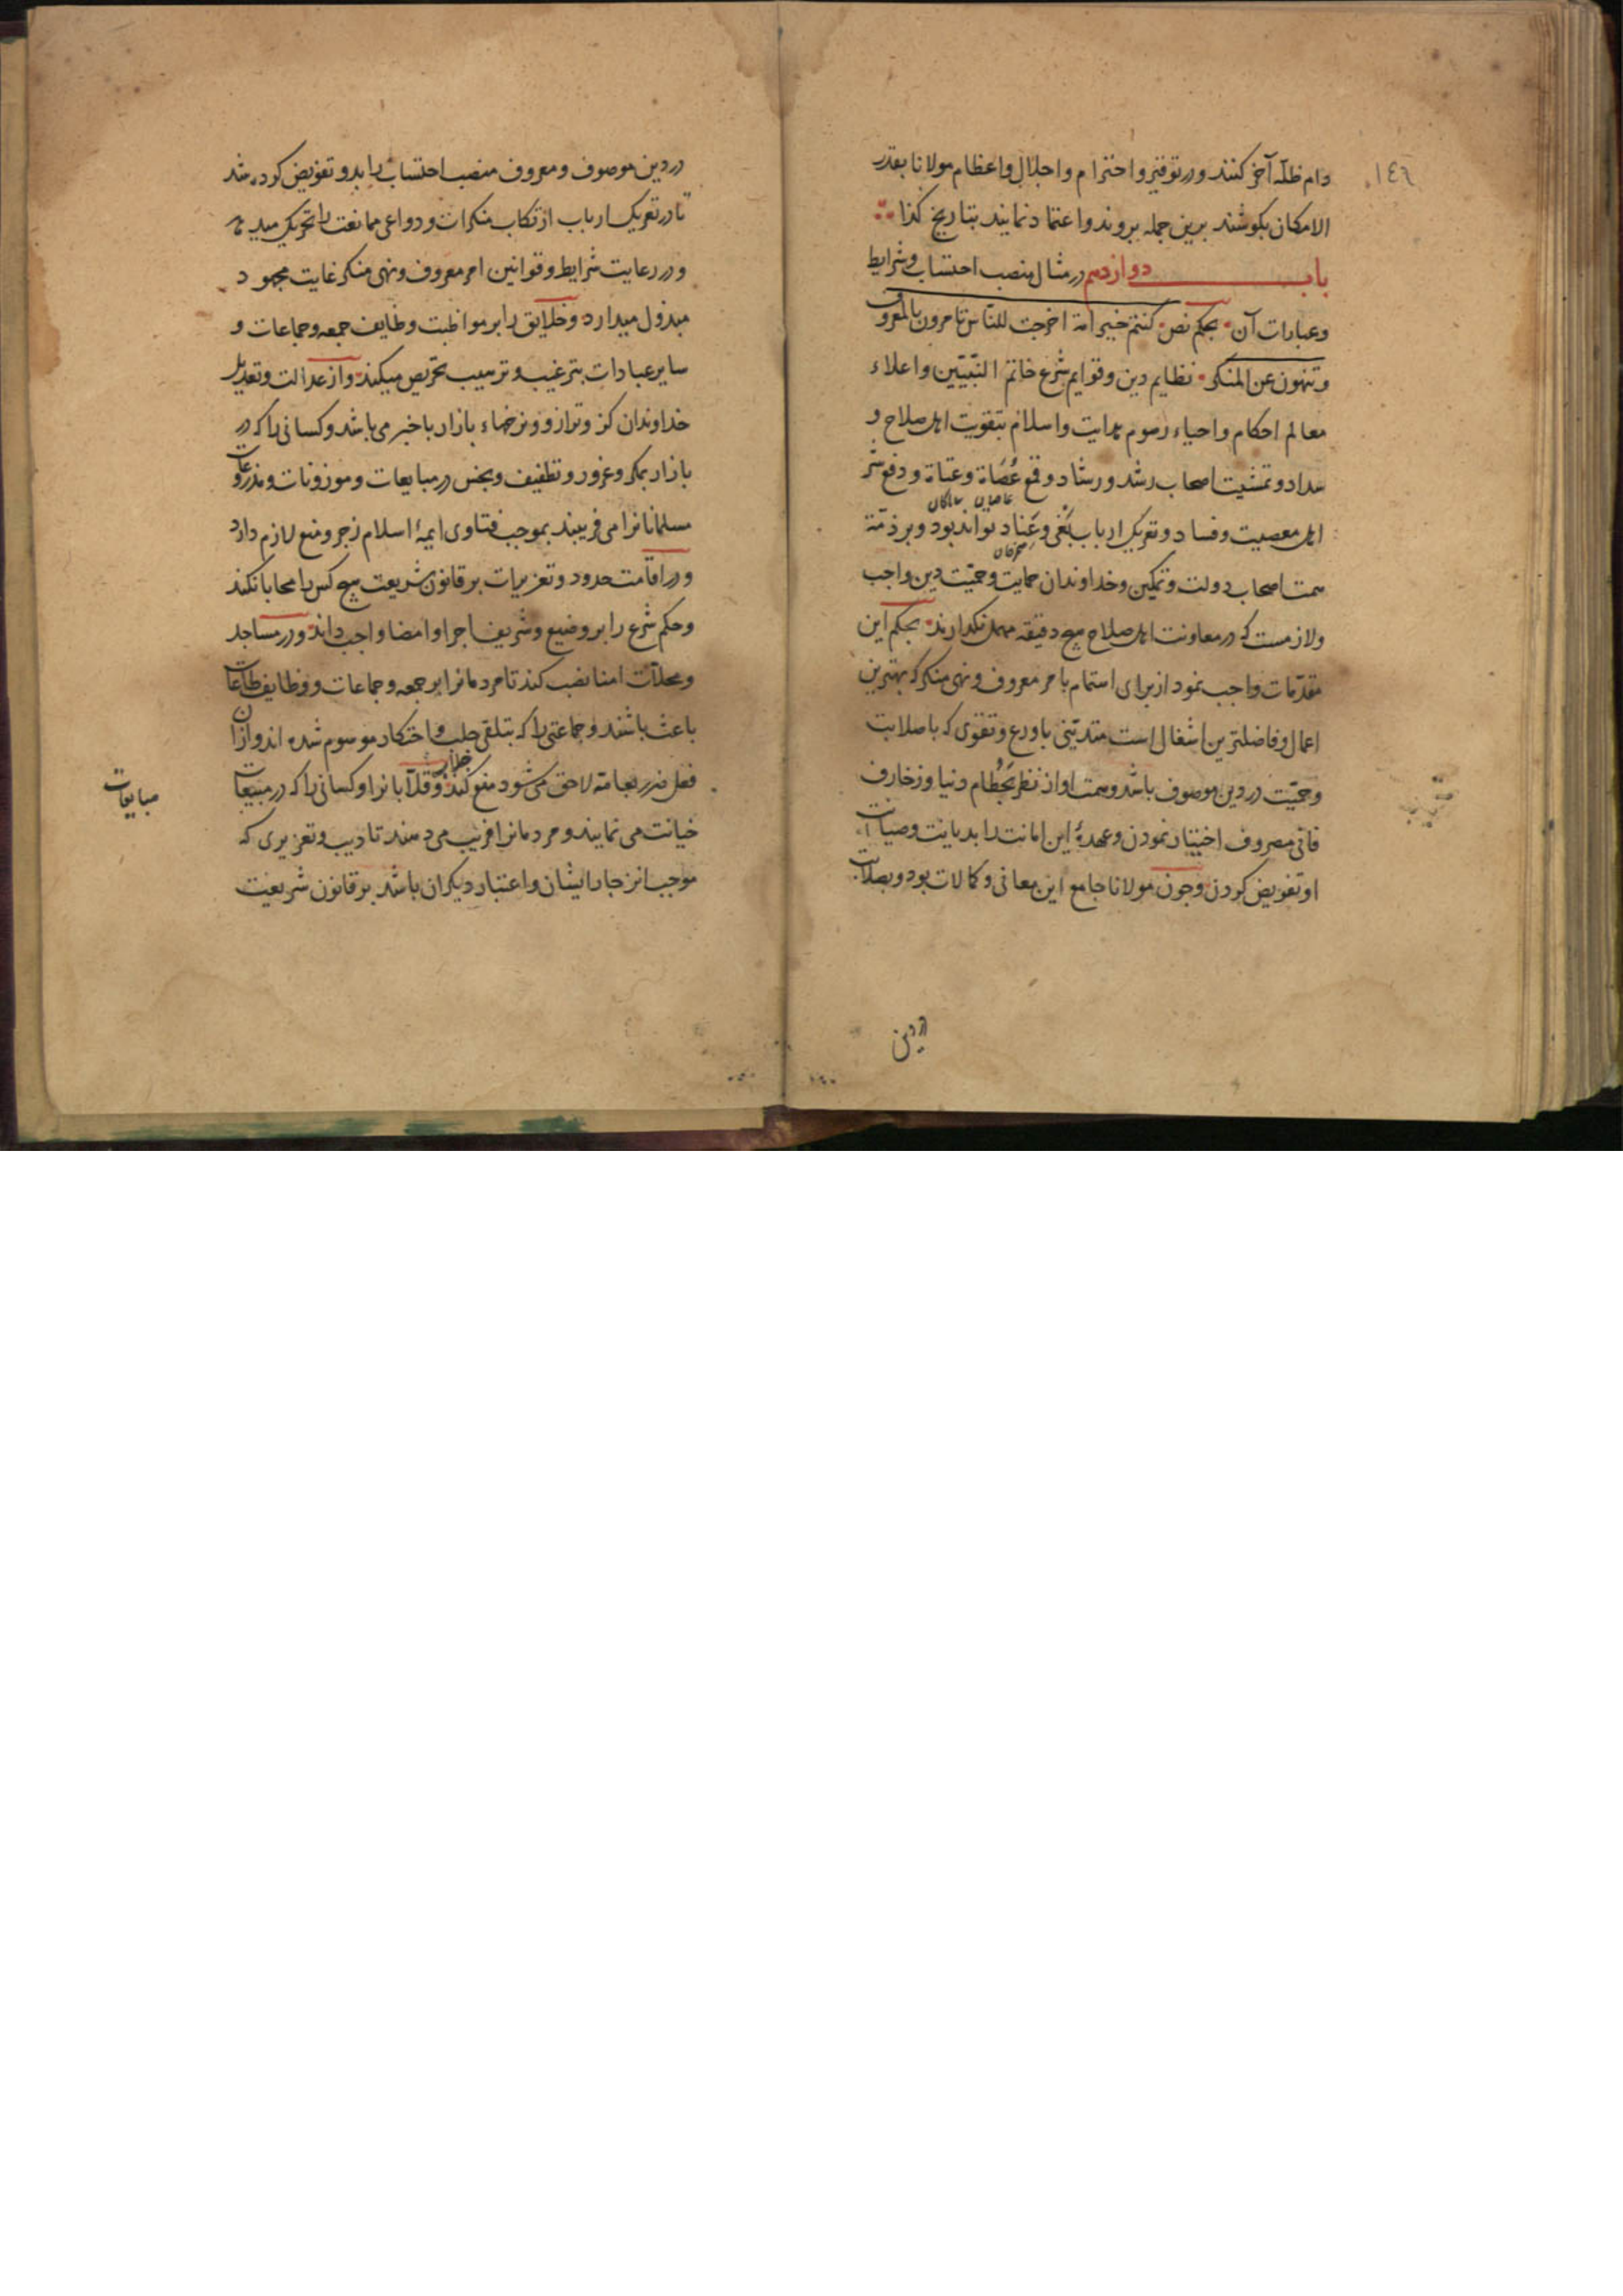 ١٤٦
دام ظله آخر کنند و در توقیر و احترام و اجلال و اعظام مولانا بقدر
الامکان بکوشند برین جمله بروند و اعتماد نمایند بتاریخ کذا
باب دوازدهم در مثال منصب احتساب و شرایط
و عبارات آن بحکم نص کنتم خیر امة اخرجت للناس تامرون بالمعروف
وتنهون عن المنکر نظایم دین و قوایم شرع خاتم النّبیّین و اعلاء
معالم احکام و احیاء رسوم هدایت و اسلام بتقویت اهل صلاح و
سداد و تمشیت اصحاب رشد و رشاد و قمع عُصَاة و عتاة و دفع شر
عاصیان
اهل معصیت و فساد و تعریک ارباب بَغی و عِناد تواند بود و بر ذمّة
همت اصحاب دولت و تمکین و خداوندان حمایت و حمیّت دین واجب
ولازمست که در معاونت اهل صلاح هیچ دقیقه مهمل نکذارند بحکم این
مقدّمات واجب نمود از برای اهتمام بامر معروف و نهی منکر که بهترین
اعمال و فاضلترین اشغال است متدیّنی با ورع و تقوی که با صلابت
و حمیّت در دین موصوف باشد و همت او از نظر بحُطام دنیا و زخارف
فانی مصروف اختیار نمودن و عهدهٔ این امانت را بدیانت و صیانت
او تفویض کردن و چون مولانا جامع این معانی و کمالات بود و بصلابت
در دین
در دین موصوف و معروف منصب احتساب را بدو تفویض کرده شد
تا در تعریک ارباب ارتکاب منکرات و دواعی ممانعت را تحریک میدهد
و در رعایت شرایط و قوانین امر معروف و نهی منکر غایت مجهود
مبذول میدارد و خلایق را بر مواظبت وظایف جمعه و جماعات و
سایر عبادات بترغیب و ترهیب تحریص میکند و از عدالت و تعدیل
خداوندان کز و ترازو و نرخهاء بازار باخبر می باشد و کسانی را که در
بازار بمکر و غرور و تطفیف و بخس در مبایعات و موزونات و مذروعات
مسلمانانرا می فریبند بموجب فتاوی ایمهٔ اسلام زجر و منع لازم دارد
و در اقامت حدود و تعزیرات بر قانون شریعت هیچ کس را محابا نکند
و حکم شرع را بر وضیع و شریف اجرا و امضا واجب داند و در مساجد
و محلّات امنا نصب کند تا مردمانرا بر جمعه و جماعات و وظایف طاعات
باعث باشند و جماعتی را که بتلقی جلب و احتکار موسوم شده اند و از آن
فعل ضرر بعامّه لاحق می شود منع کند و قلّابانرا و کسانی را که در مبیعات
مبایعات
خیانت می نمایند و مردمانرا فریب می دهند تادیب و تعزیری که
موجب انزجار ایشان و اعتبار دیکران باشد بر قانون شریعت